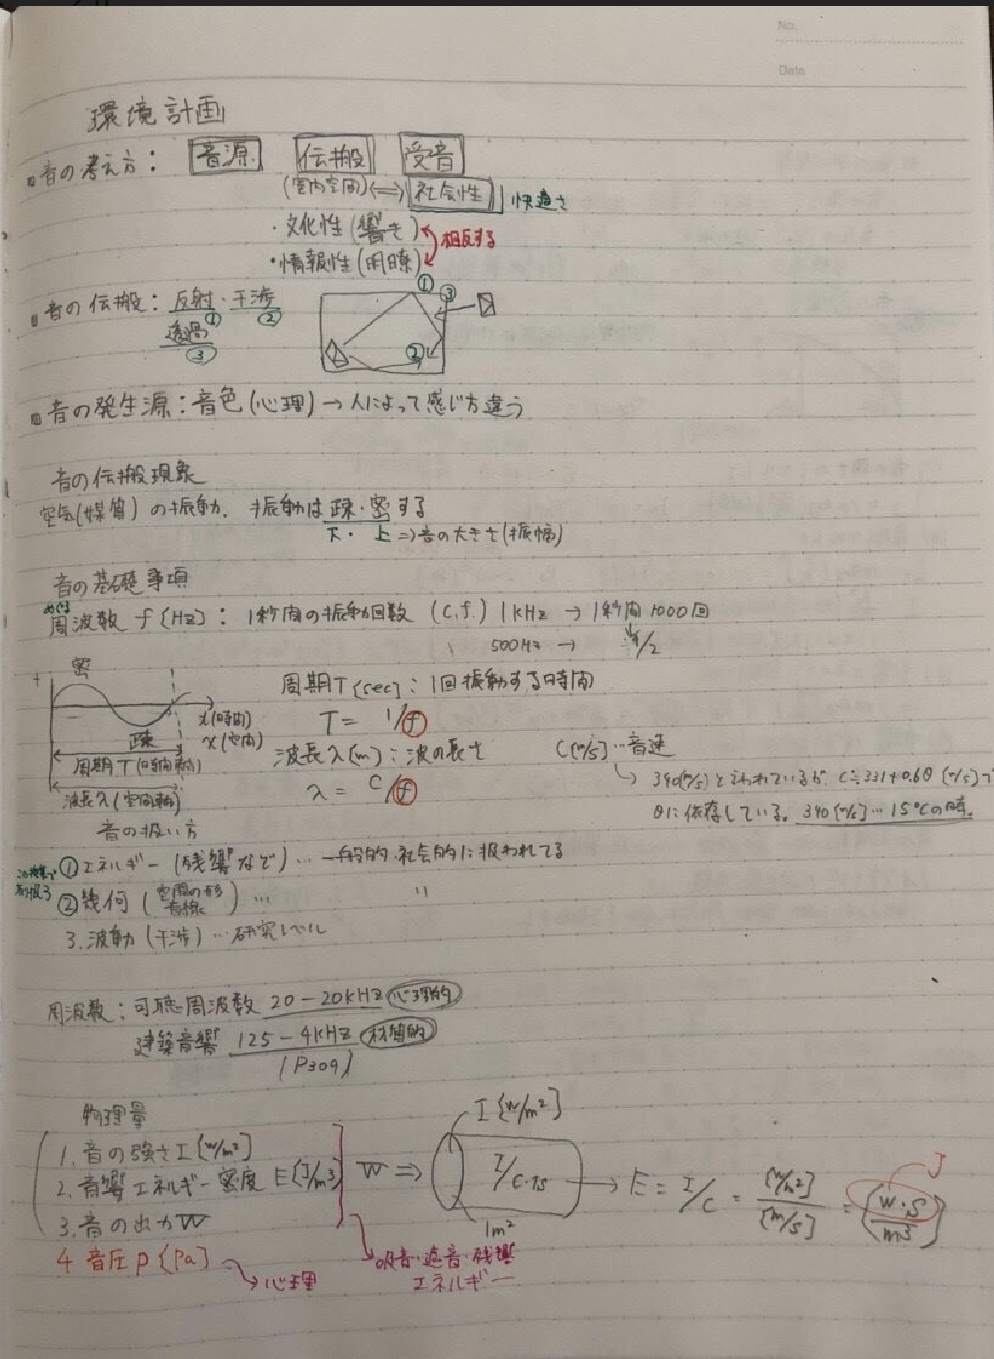 No.
Date
環境計画
音の考え方： 音源 伝搬 受音
(室内空間) ⇔ 社会性 快適さ
・文化性 (響き)
相反する
・情報性 (明瞭)
音の伝搬： 反射・干渉
① ②
透過
③
① ③
②
音の発生源：音色 (心理) → 人によって感じ方違う
音の伝搬現象
空気(媒質) の振動、振動は疎・密する
下・上 ⇒ 音の大きさ (振幅)
音の基礎事項
周波数 f [Hz]： 1秒間の振動回数 (c.f.) 1kHz → 1秒間1000回
500Hz → 〃 1/2
密
+
−
疎
t(時間)
x(空間)
周期T(時間軸)
波長λ(空間軸)
周期T [sec]：1回振動する時間
T = 1/f
波長λ(m)：波の長さ C[m/s]…音速
λ = C/f
340(m/s)と言われているが、C≒331+0.6θ (m/s)で
θに依存している。340(m/s)…15℃の時。
音の扱い方
この授業で
取り扱う
① エネルギー (残響など) … 一般的・社会的に扱われてる
② 幾何 (空間の形 音線) … 〃
3. 波動 (干渉) … 研究レベル
周波数：可聴周波数 20−20kHz 心理的
建築音響 125−4kHz 材質的
(P309)
物理量
1. 音の強さ I [W/m²]
2. 音響エネルギー密度 E [J/m3]
3. 音の出力 W
4 音圧 P [Pa]
→ 心理
→ 吸音・遮音・残響
エネルギー
W ⇒
I [W/m²]
I/C・1s
1m²
→ E = I/C = [W/m²]/[m/s] = [W・S/m3]
J